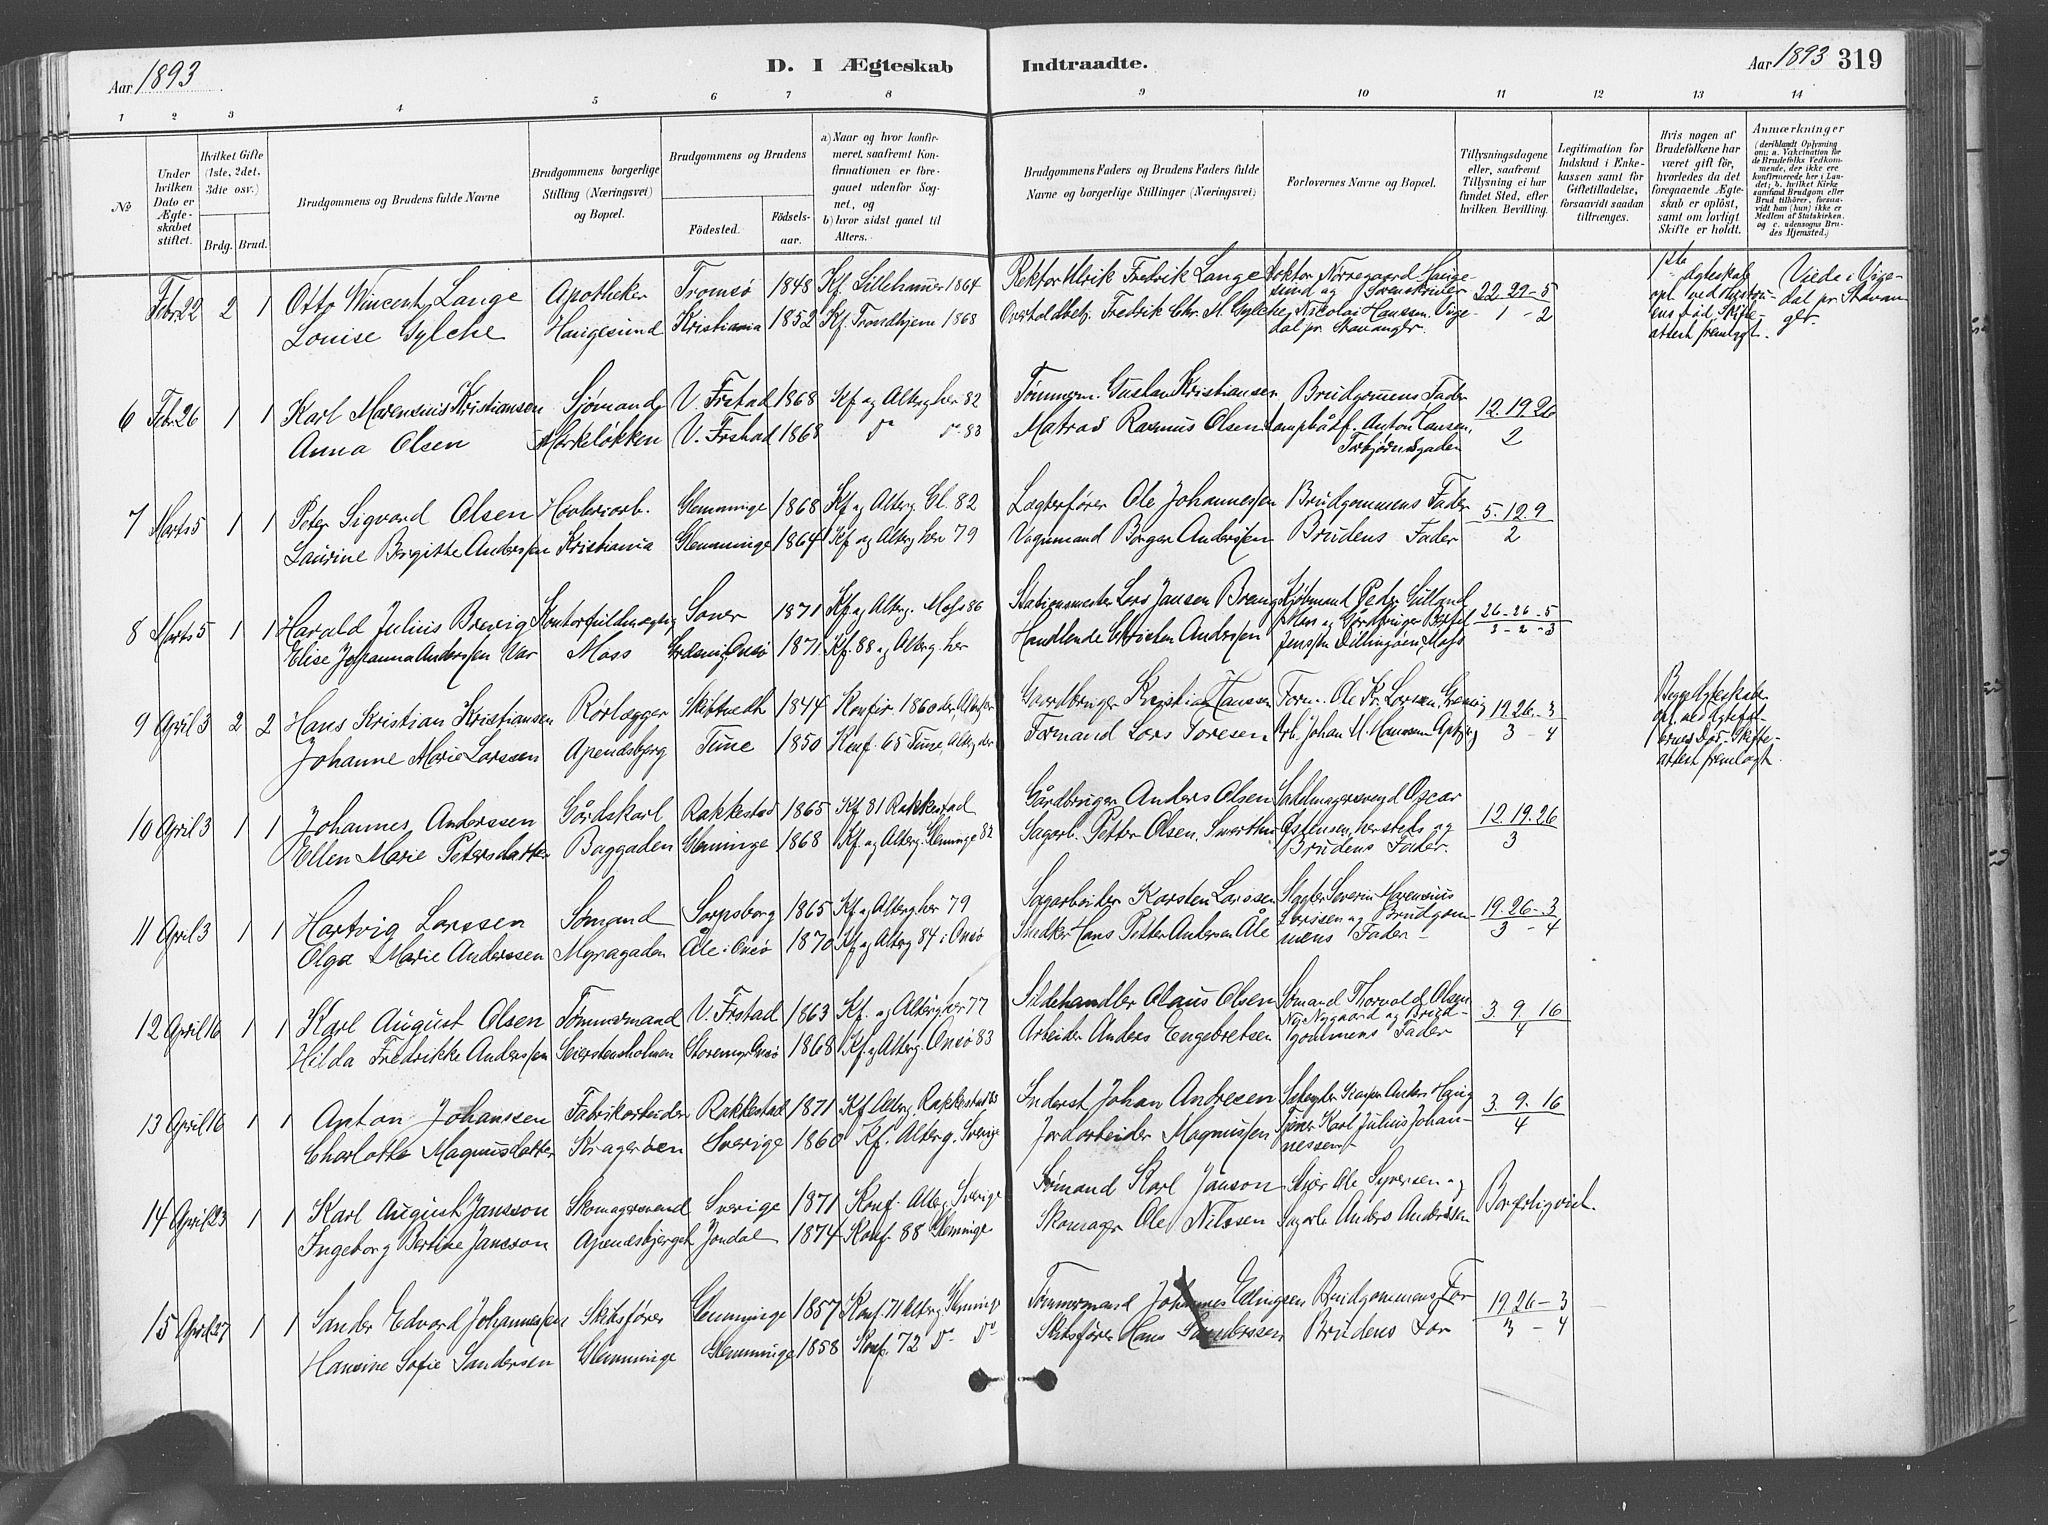 Aar 1893
D. I Ægteskab
Indtraadte.
Aar 1893 319
1 2 3 4 5 6 7 8 9 10 11 12 13 14
№
Under hvilken Dato er Ægteskabet stiftet.
Hvilket Gifte (1ste, 2det, 3die osv.)
Brdg. Brud.
Brudgommens og Brudens fulde Navne
Brudgommens borgerlige Stilling (Næringsvei) og Bopæl.
Brudgommens og Brudens
Fødested.
Fødselsaar.
a) Naar og hvor konfirmeret, saafremt Konfirmationen er foregaaet udenfor Sognet, og
b) hvor sidst gaaet til Alters.
Brudgommens Faders og Brudens Faders fulde Navne og borgerlige Stillinger (Næringsvei)
Forlovernes Navne og Bopæl.
Tillysningsdagene eller, saafremt Tillysning ei har fundet Sted, efter hvilken Bevilling.
Legitimation for Indskud i Enkekassen samt for Giftetilladelse, forsaavidt saadan tiltrænges.
Hvis nogen af Brudefolkene har været gift før, hvorledes da det foregaaende Ægteskab er opløst, samt om lovligt Skifte er holdt.
Anmærkninger
(deriblandt Oplysning om: a. Vaccination for de Brudefolks Vedkommende, der ikke ere konfirmerede her i Landet; b. hvilket Kirkesamfund Brudgom eller Brud tilhører, forsaavidt han (hun) ikke er Medlem af Statskirken, og c. udensogns Brudes Hjemsted.)
Febr 22 2 1 Otto Wincenty Lange Apotheker Tromsø 1848 Kf. Lillehamer 1864 Rektor Ulrik Fredrik Lange Doktor Nørregaard Haugesund og 22-29-5
Louise Gylche Haugesund Kristiania 1852 Kf. Trondhjem 1868 Fredrik Chr. M. Gylche Nicolai Hanssen, Vigedal pr. Stavanger 1-2
1ste Ægteskab opl. ved Hustruens Død. Skifteattest fremlagt.
Viede i Vigedal pr. Stavanger.
6 Febr 26 1 1 Karl Marensius Kristiansen Sjømand V. Frstad 1868 Kf og Alterg her 82 Tømmerm. Gustav Kristiansen Brudgommens Fader 12.19.26
Anna Olsen Markeløkken V. Frstad 1868 Do Do 83 Matros Rasmus Olsen Anton Hansen, Torbjørnsgaden 2
7 Marts 5 1 1 Peter Sigvard Olsen Høvleriarb. Glemminge 1868 Kf og Alterg. Gl. 82 Lægterfører Ole Johannessen Brudgommens Fader 5.12.9
Laurine Birgitte Anderssen Kristiania Glemminge 1864 Kf og Alterg her 79 Vognmand Borger Anderssen Brudens Fader 2
8 Marts 5 1 1 Harald Julius Brevig Kontorfuldmægtig 1871 Kf og Alterg. Moss 86 Stationsmester Lars Jansen Kjøbmand Peder 26-26-5
Elise Johanna Anderssen Moss Onsø 1871 Kf. 88 og Alterg. her Handlende Christen Anderssen Moss og Gårdbruger Jenssen Dillingøen, Moss 3-2-3
9 April 3 2 2 Hans Kristian Kristiansen Rørlægger Skiptvedt 1844 Konfir. 1860 Gaardbruger Kristian Hanssen Form. Ole Kr. Larssen, 19.26-3
Johanne Marie Larssen Apenæsbjerg Tune 1850 Konf. 65 Tune, Alterg her Formand Lars Toresen Arb. Johan M. Hanssen 3-4
Begge Ægteskaber opl. ved Ægtefællernes Død - Skifteattest fremlagt.
10 April 3 1 1 Johannes Anderssen Gårdskarl Rakkestad 1865 Kf 81 Rakkestad Gårdbruger Anders Olsen Sadelmagersvend Oscar 12.19.26
Ellen Marie Petersdatter Baggaden Glemminge 1868 Kf. og Alterg. Glemminge 82 Sagarb. Petter Olsen. Østensen, og Brudens Fader. 3
11 April 3 1 1 Hartvig Larssen Sømand Sarpsborg 1865 Kf og Alterg her 79 Sagarbeider Karsten Larssen Slagter Severin Marensius 19.26-3
Olga Marie Anderssen Myragaden Åle i Onsø 1870 Kf og Alterg 84 i Onsø Hans Petter Andersen Åle Larssen og Brudgommens Fader - 3-4
12 April 16 1 1 Karl August Olsen Tømmermand V. Frstad 1863 Kf. og Alterg her 77 Sildehandler Olaus Olsen Sømand Thorvald Olsen 3.9.16
Hilda Fredrikke Anderssen Seierstensholmen Storemyr Onsø 1868 Kf og Alterg. Onsø 83 Arbeider Anders Engebretsen Ny Nygaard og Brudgommens Fader 4
13 April 16 1 1 Anton Johanssen Fabrikarbeider Rakkestad 1871 Kf Alterg. Rakkestad Inderst Johan Andresen Anders 3.9.16
Charlotte Magnusdatter Kragerøen Sverige 1860 Kf. Alterg. Sverige Jordarbeider Magnussen Tjener Karl Julius Johannessen 4
14 April 23 1 1 Karl August Jansson Skomagersvend Sverige 1871 Konf. Alterg. Sverige Sømand Karl Janson Ole Syversen og Borgerlig viet.
Ingeborg Bertine Jansson Apenæsbjerget Jondal 1874 Konf. 88 Glemminge Skomager Ole Nilssen Sagarb. Anders Anderssen
15 April 27 1 1 Sander Edvard Johannessen Skibsfører Glemminge 1857 Konf. 71 Alterg Glemminge Tømmermand Johannes Brudgommens Far 19.26-3
Hansine Sofie Sandersen Glemminge Glemminge 1858 Konf. 72 Do Do Skibsfører Hans Sanderssen Brudens Far 3-4